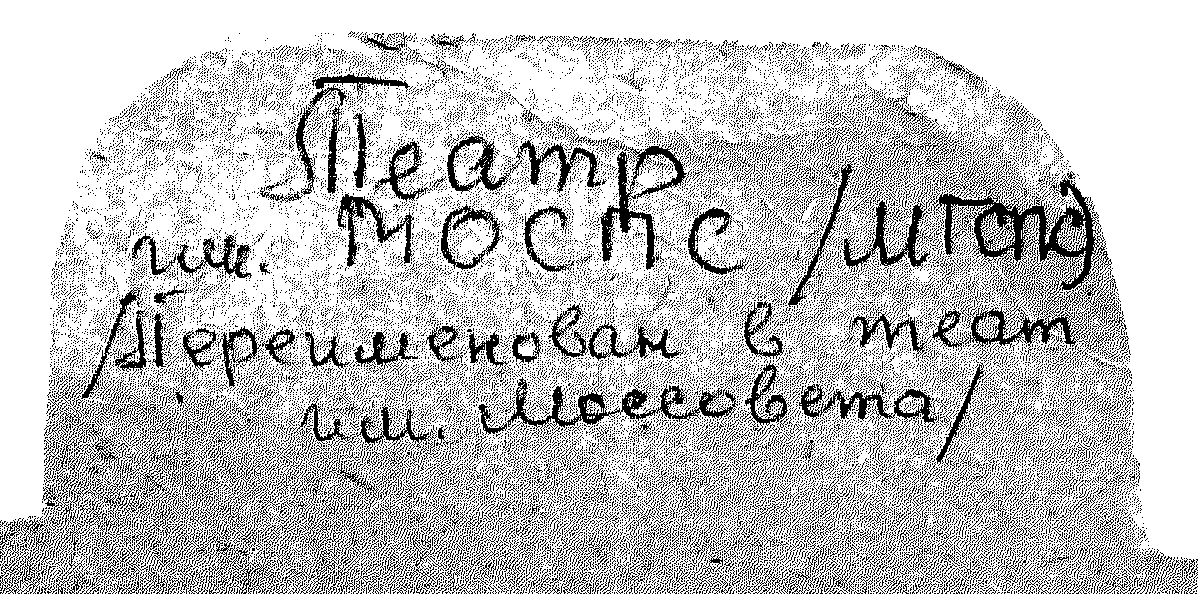 Театр
им. МОСПС /МГСПС)
/Переименован в теат
им. Моссовета/